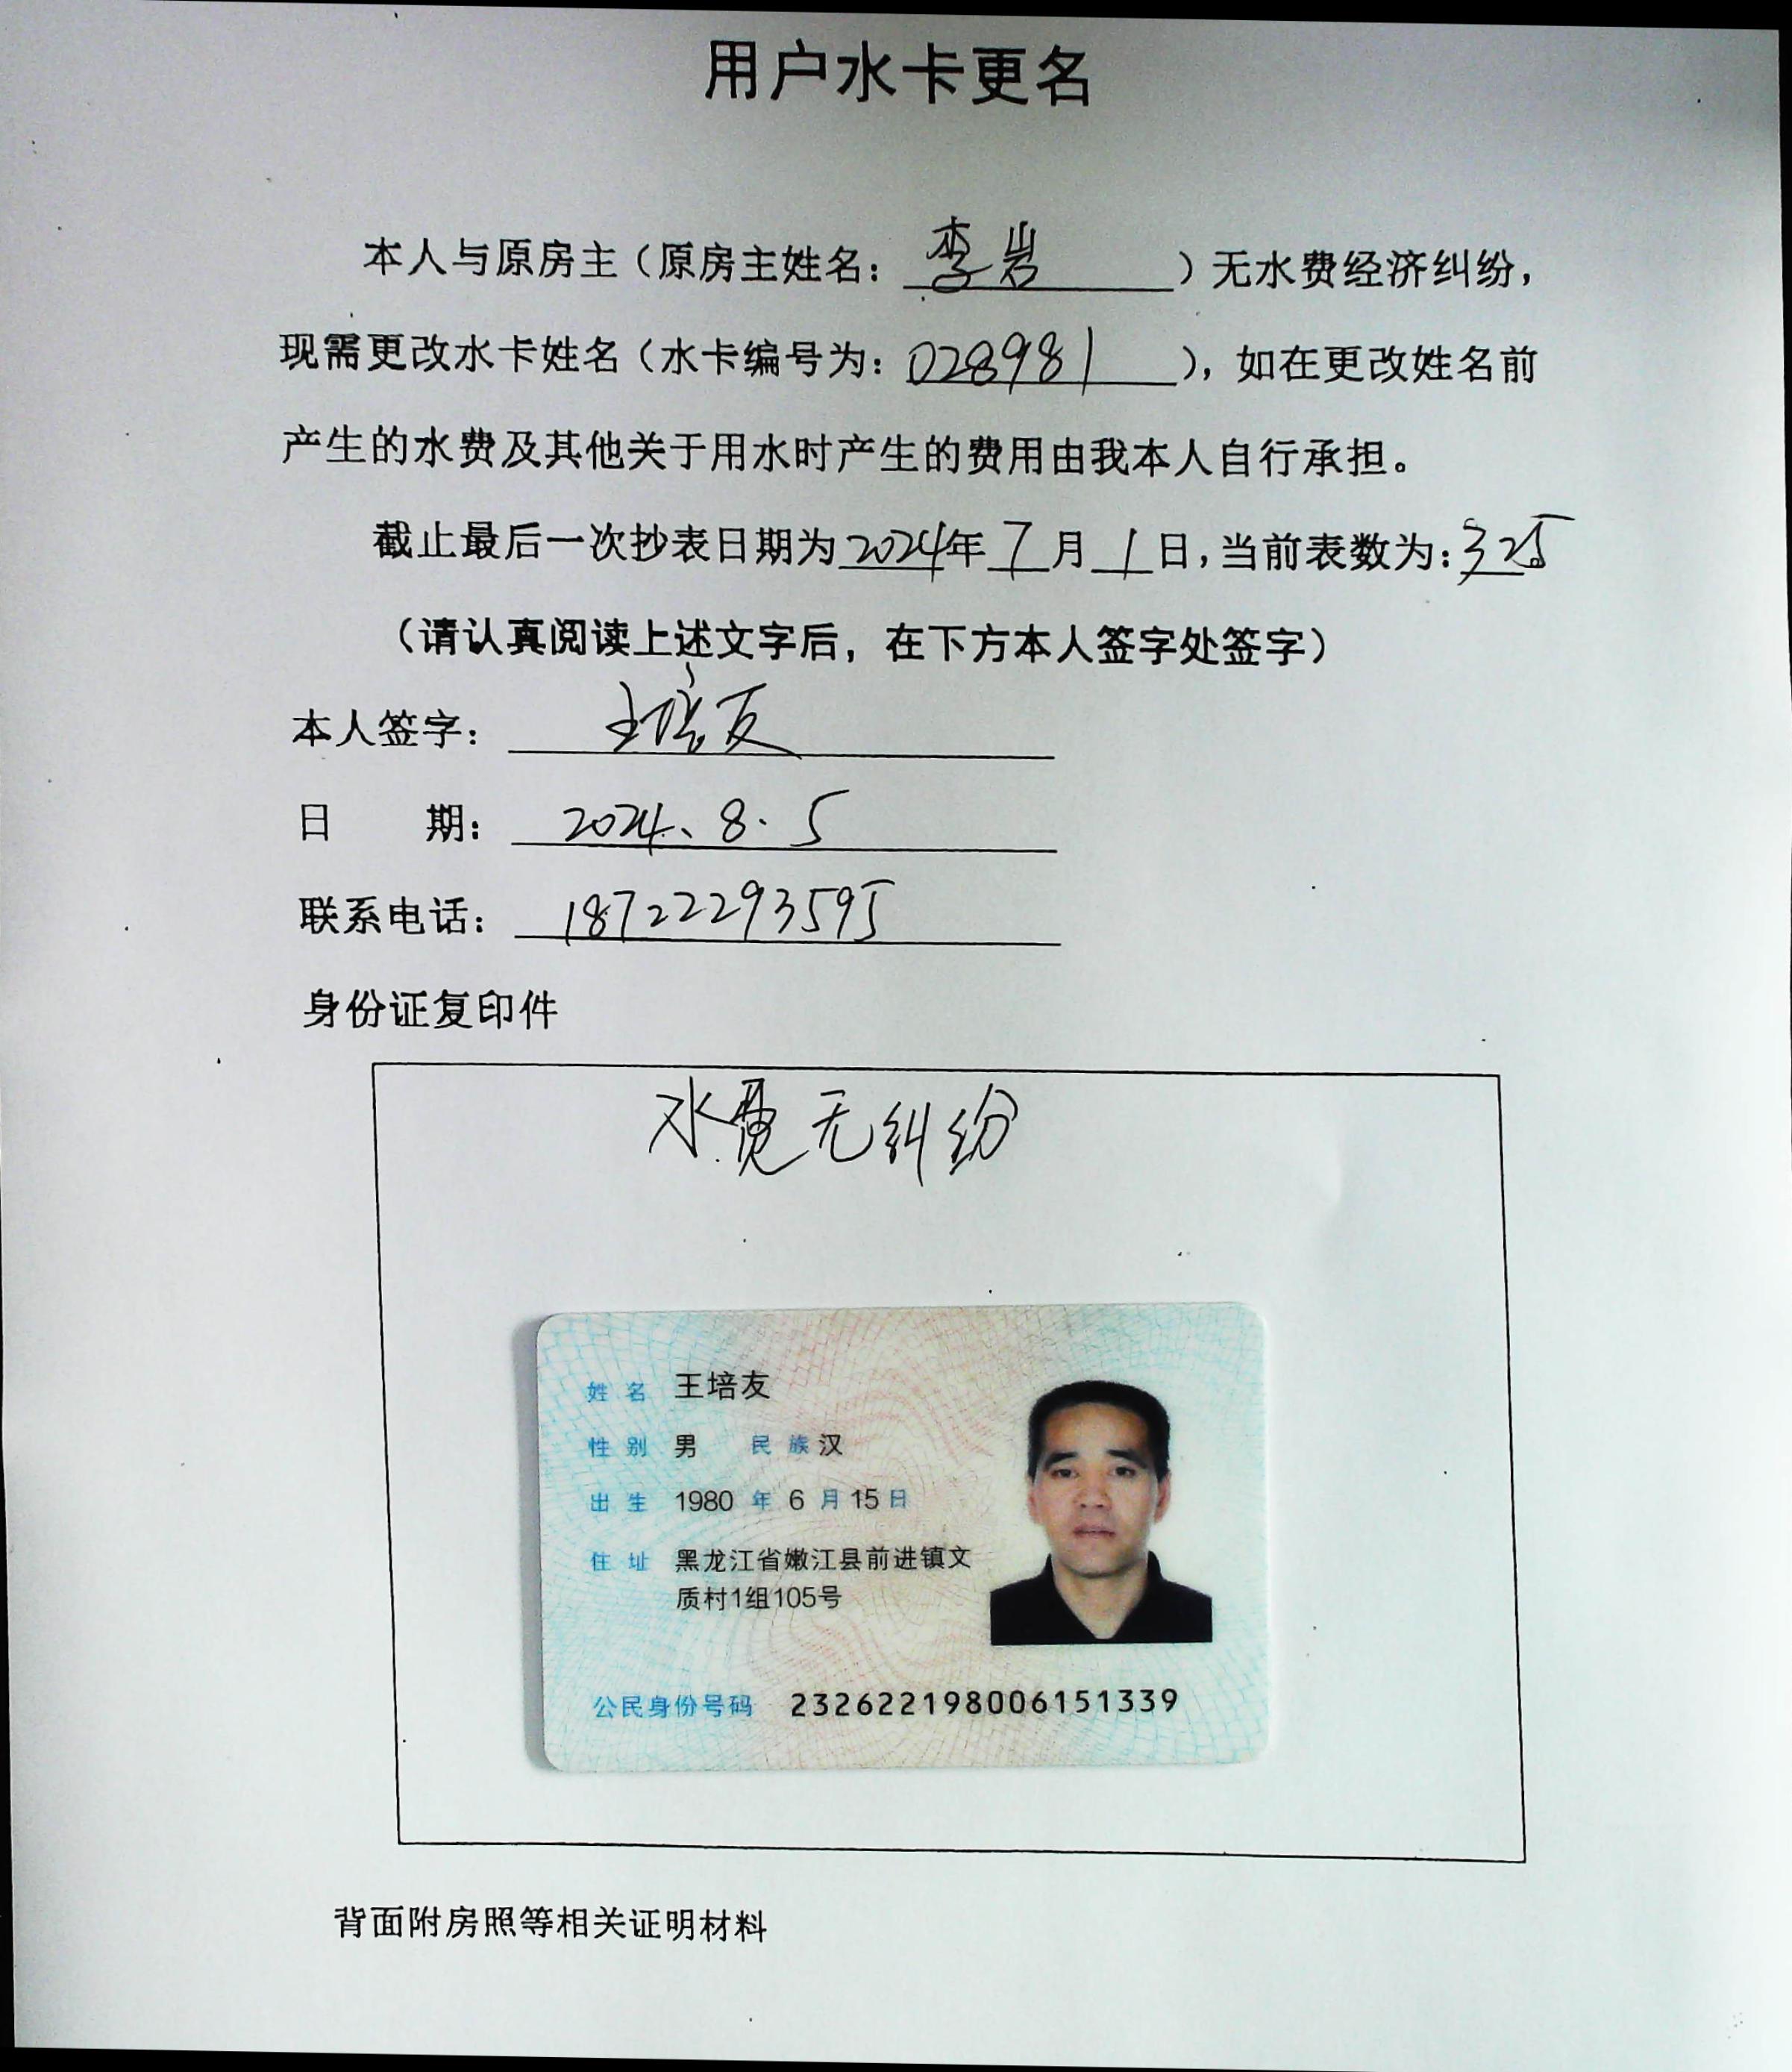 用户水卡更名
本人与原房主（原房主姓名：李岩）无水费经济纠纷，
现需更改水卡姓名（水卡编号为：028981），如在更改姓名前
产生的水费及其他关于用水时产生的费用由我本人自行承担。
截止最后一次抄表日期为2024年7月1日，当前表数为：325
（请认真阅读上述文字后，在下方本人签字处签字）
本人签字：王培友
日期：2024、8.5
联系电话：18722293595
身份证复印件
水费无纠纷
姓名 王培友
性别 男 民族 汉
出生 1980年6月15日
住址 黑龙江省嫩江县前进镇文
质村1组105号
公民身份号码 232622198006151339
背面附房照等相关证明材料